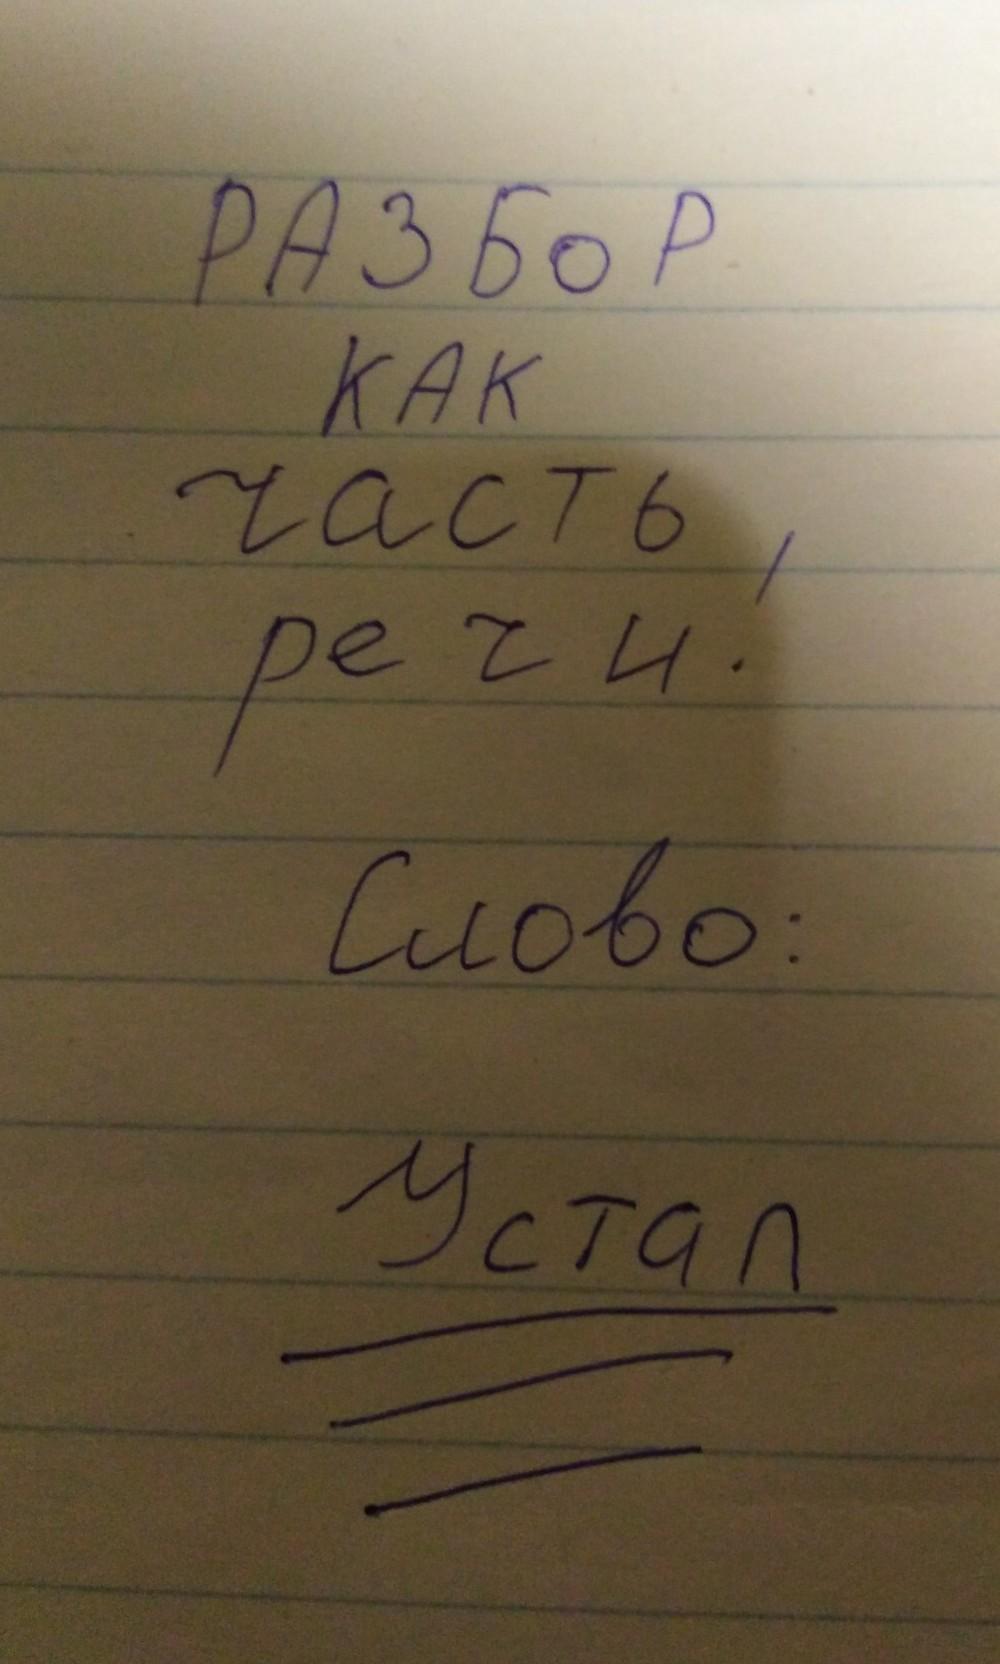 РАЗБОР
КАК
часть
речи!
Слово:
Устал